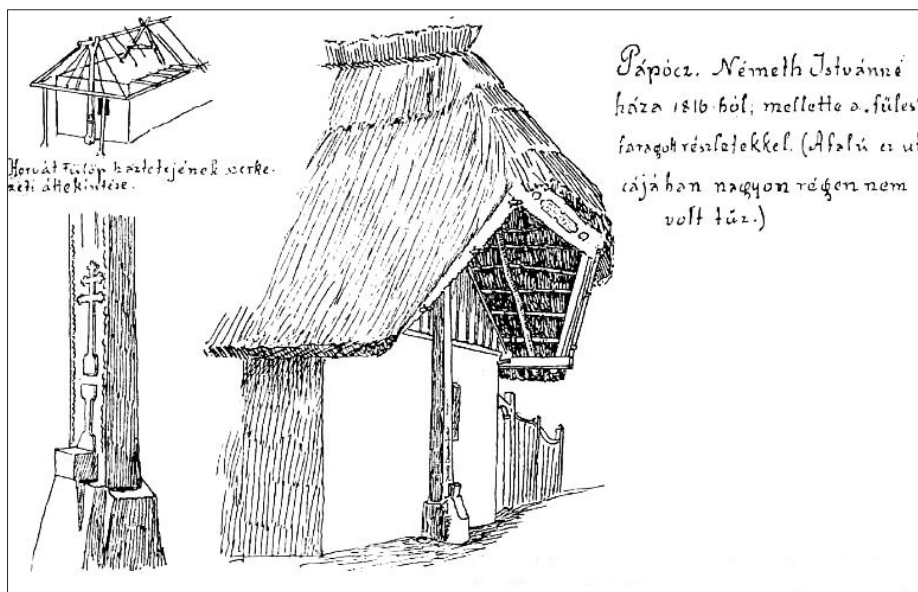 Horvát Fülöp háztetejének szerke-
zeti áttekintése.
Pápócz. Németh Istvánné
háza 1816-ból; mellette a fülesi
faragott részletekkel. (A falú ez ut
cájában nagyon régen nem
volt tűz.)